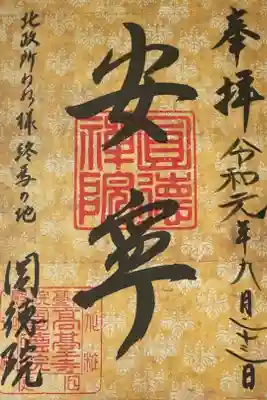 奉拝 令和元年九月十二日
安寧
圓德禪院
北政所ねね様終焉の地
圓徳院